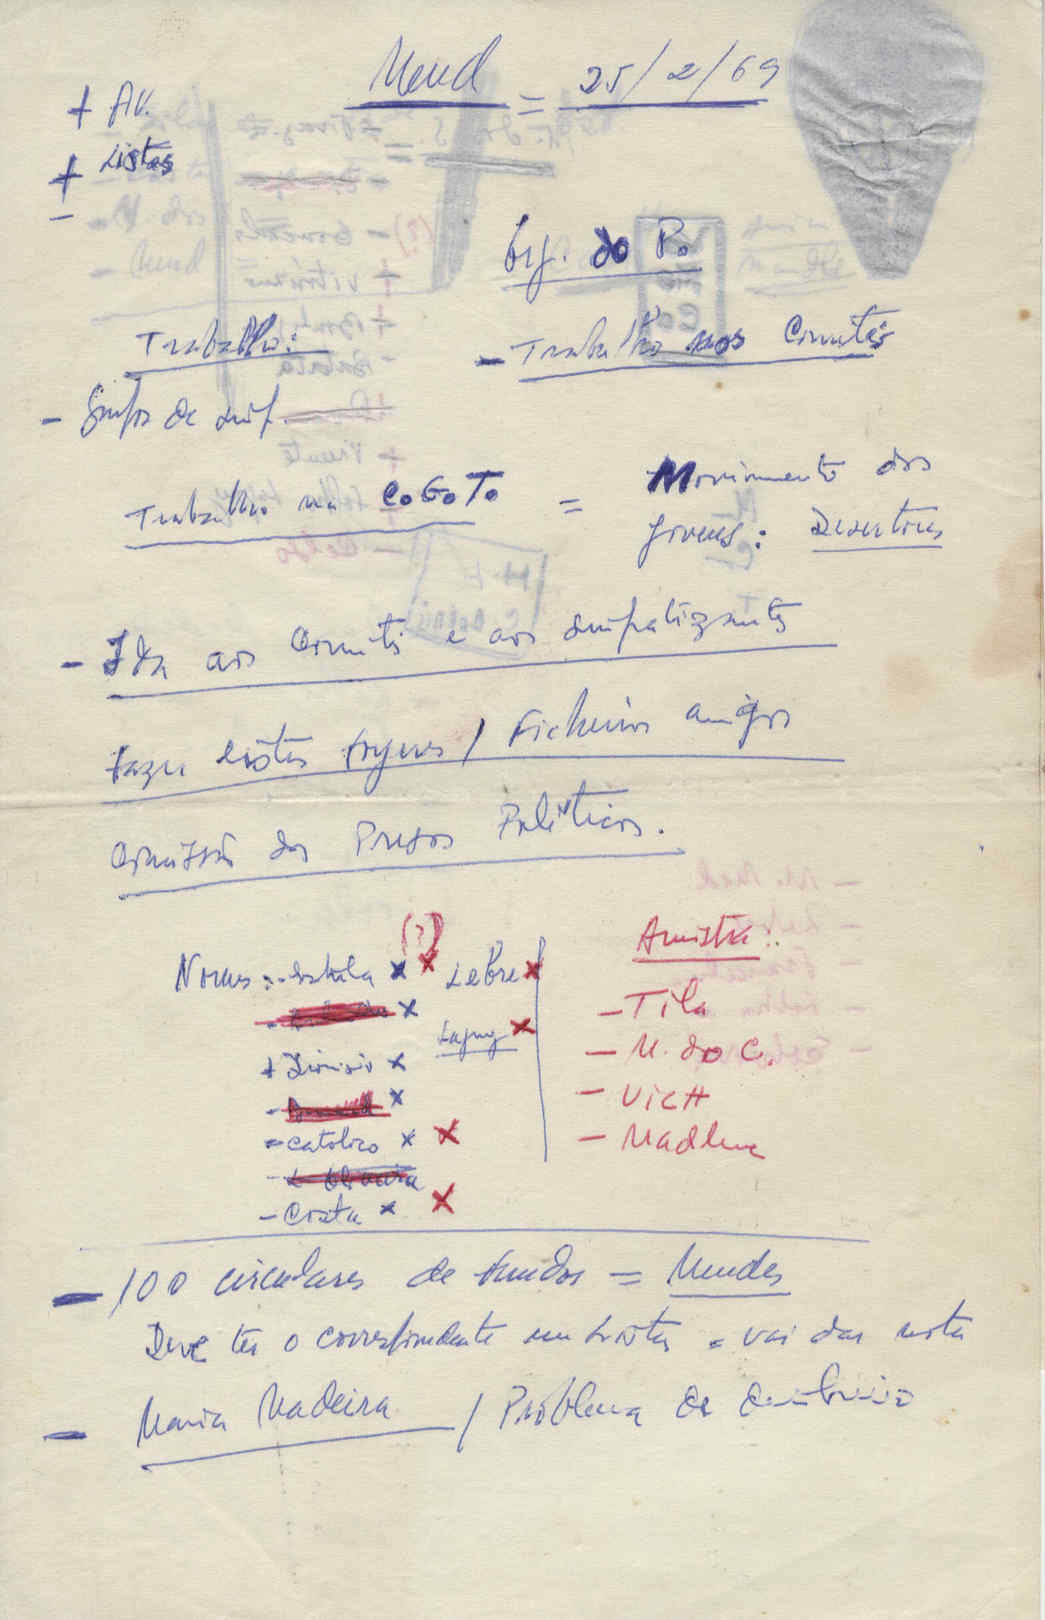 Mend = 25/2/69
+ AV.
+ Listas
-
Org. do P.
Trabalho:
- Trabalho nos Comités
- Grupos de simp.
Trabalho na C.G.T. = Movimento dos
jovens: Desertores
- Ida aos Comités e aos simpatizantes
fazer listas / Ficheiros amigos
Comissão dos Presos Políticos.
(?)
Nomes: - x x Lebre x
- x
+ Dionisio x
- x
- Catolico x x
- L Oliveira
- Costa x x
Amnistia:
- Tila
- M. do C.
- Vich
- Madlene
- 100 circulares de fundos = Mendes
Deve ter o correspondente em listas = vai dar nota
- Maria Madeira / Problema de